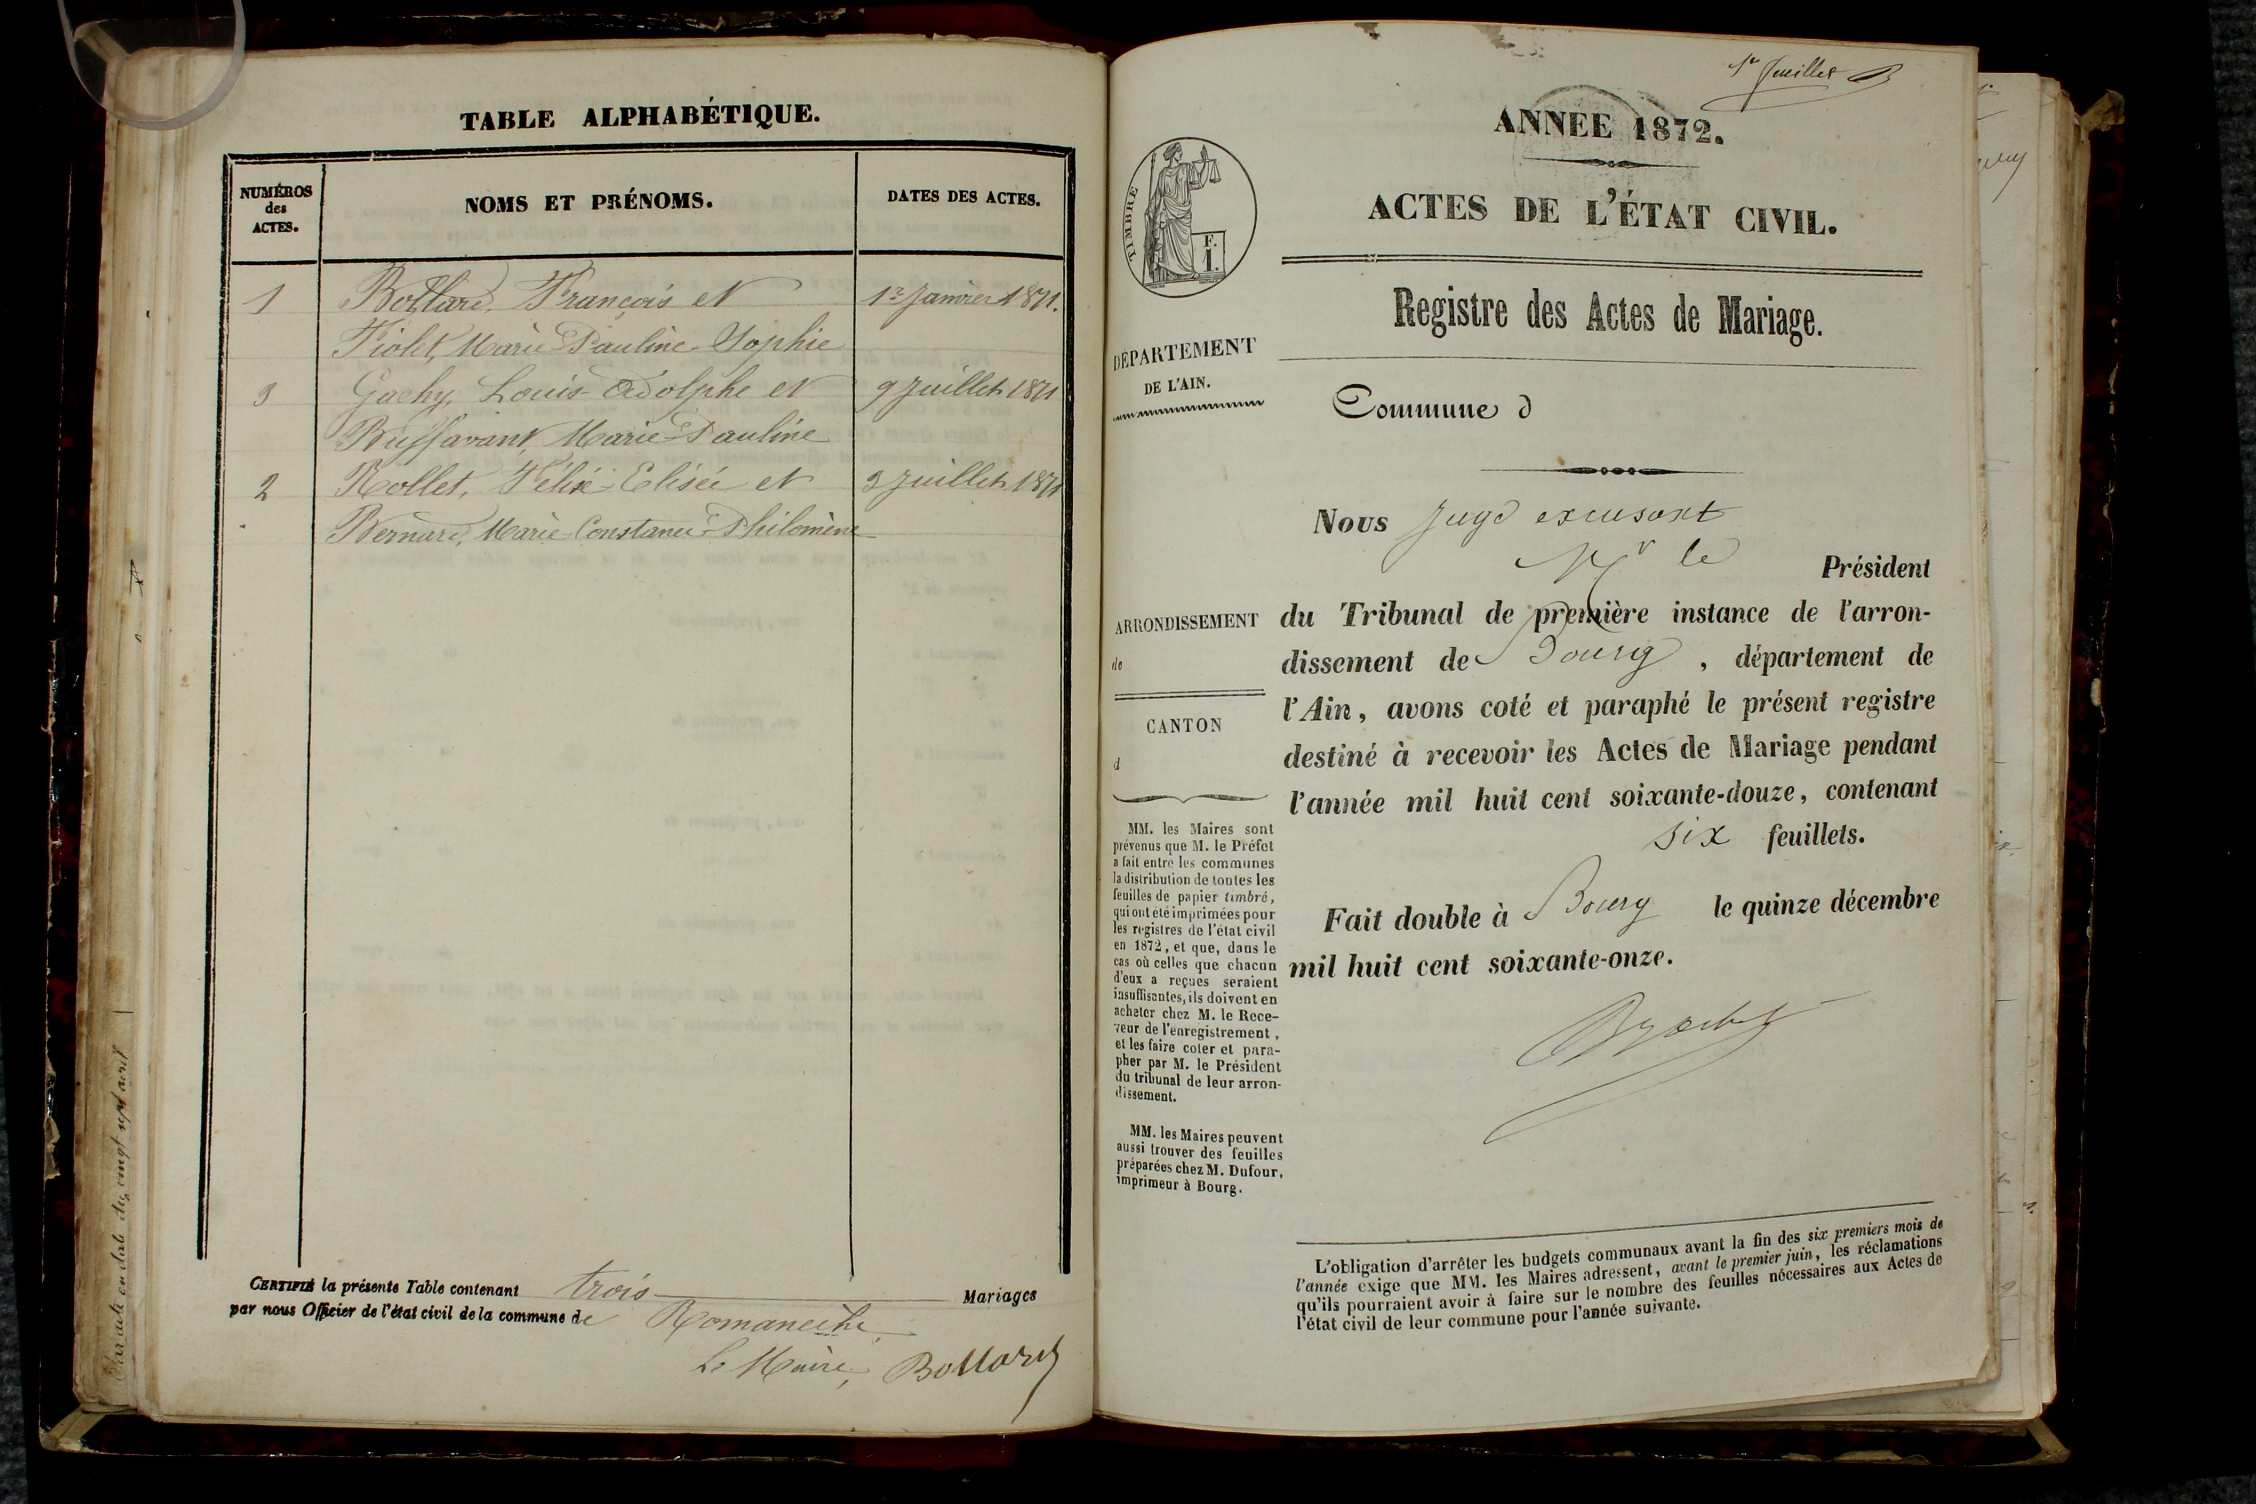 TABLE ALPHABÉTIQUE.
NUMÉROS
des
ACTES.
NOMS ET PRÉNOMS.
DATES DES ACTES.
1 Bollard, François et 1er Janvier 1871.
Violet, Marie-Pauline-Sophie
3 Gachy, Louis-Adolphe et 9 Juillet 1871
Buffavant, Marie-Pauline
2 Rollet, Félix-Elisée et 3 Juillet 1871
Bernard, Marie-Constance-Philomène
CERTIFIÉ la présente Table contenant trois Mariages
par nous Officier de l'état civil de la commune de Romanèche
Le Maire, Bollard
1er feuillet B
ANNEE 1872.
ACTES DE L'ÉTAT CIVIL.
Registre des Actes de Mariage.
TIMBRE
F.
I.
DÉPARTEMENT
DE L'AIN.
Commune d
Nous Juge excusant
Mr le Président
du Tribunal de première instance de l'arron-
dissement de Bourg, département de
l'Ain, avons coté et paraphé le présent registre
destiné à recevoir les Actes de Mariage pendant
l'année mil huit cent soixante-douze, contenant
six feuillets.
Fait double à Bourg le quinze décembre
mil huit cent soixante-onze.
ARRONDISSEMENT
de
CANTON
d
MM. les Maires sont
prévenus que M. le Préfet
a fait entre les communes
la distribution de toutes les
feuilles de papier timbré,
qui ont été imprimées pour
les registres de l'état civil
en 1872, et que, dans le
cas où celles que chacun
d'eux a reçues seraient
insuffisantes, ils doivent en
acheter chez M. le Rece-
veur de l'enregistrement,
et les faire coter et para-
pher par M. le Président
du tribunal de leur arron-
dissement.
MM. les Maires peuvent
aussi trouver des feuilles
préparées chez M. Dufour,
imprimeur à Bourg.
L'obligation d'arrêter les budgets communaux avant la fin des six premiers mois de
l'année exige que MM. les Maires adressent, avant le premier juin, les réclamations
qu'ils pourraient avoir à faire sur le nombre des feuilles nécessaires aux Actes de
l'état civil de leur commune pour l'année suivante.